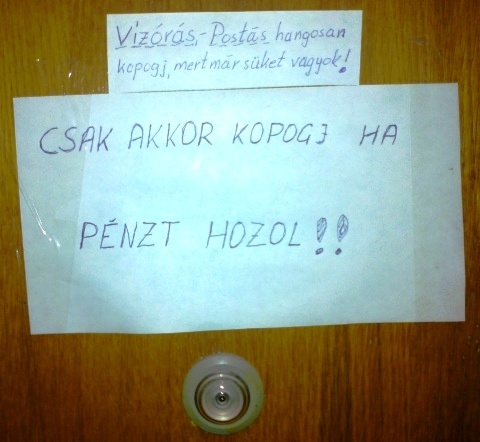 Vízórás,-Postás hangosan
kopogj, mert már süket vagyok!
CSAK AKKOR KOPOGJ HA
PÉNZT HOZOL!!